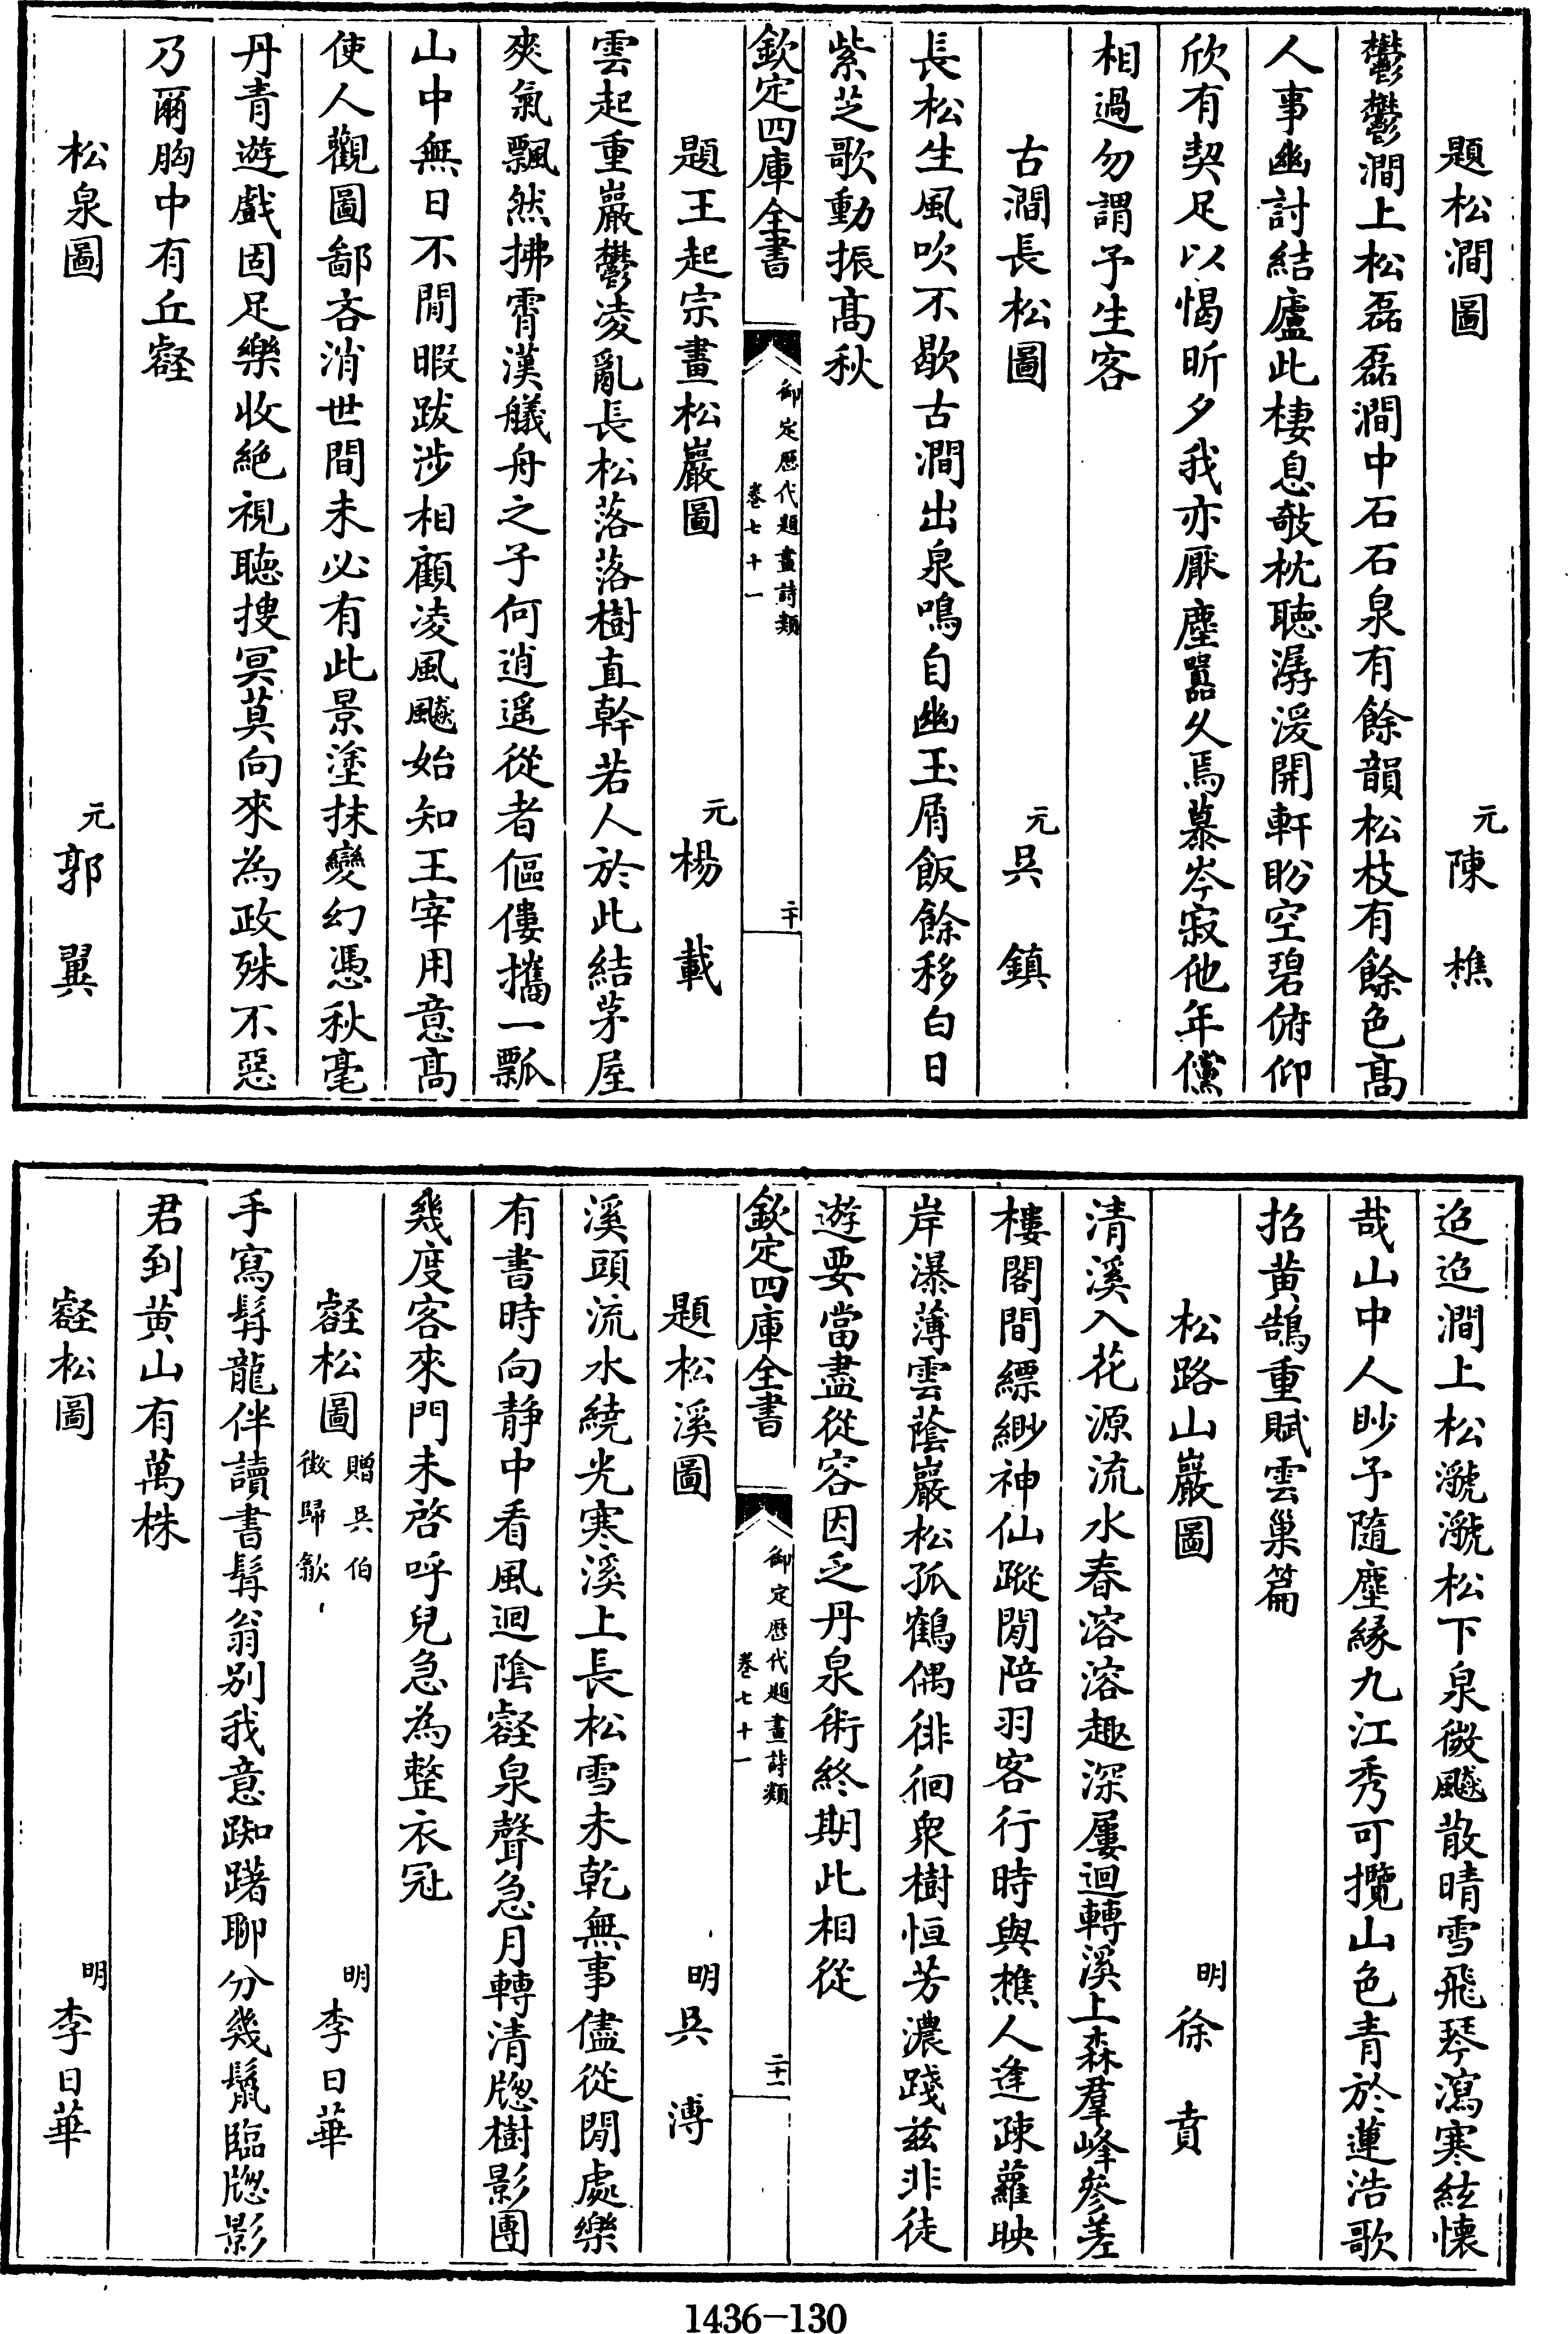 題松澗圖　元陳樵
鬱鬱澗上松磊磊澗中石石泉有餘韻松枝有餘色高
人事幽討結廬此棲息敧枕聽潺湲開軒盼空碧俯仰
欣有契足以愒昕夕我亦厭塵囂久焉慕岑寂他年儻
相過勿謂予生客
古澗長松圖　元吳鎮
長松生風吹不歇古澗出泉鳴自幽玉屑飯餘移白日
紫芝歌動振高秋
欽定四庫全書　御定歷代題畫詩類　卷七十一　二十
題王起宗畫松巖圖　元楊載
雲起重巖鬱凌亂長松落落樹直幹若人於此結茅屋
爽氣飄然拂霄漢艤舟之子何逍遥從者傴僂攜一瓢
山中無日不閒暇跋涉相顧凌風飈始知王宰用意高
使人觀圖鄙吝消世間未必有此景塗抹變幻憑秋毫
丹青遊戲固足樂收絶視聽搜冥莫向來為政殊不惡
乃爾胸中有丘壑
松泉圖　元郭翼
迢迢澗上松漉漉松下泉微飈散晴雪飛琴瀉寒絃懷
哉山中人眇予隨塵縁九江秀可攬山色青於蓮浩歌
招黄鵠重賦雲巢篇
松路山巖圖　明徐賁
清溪入花源流水春溶溶趣深屢迴轉溪上森羣峰參差
樓閣間縹緲神仙蹤閒陪羽客行時與樵人逢疎蘿映
岸瀑薄雲蔭巖松孤鶴偶徘徊衆樹恒芳濃踐兹非徒
遊要當盡從容因乏丹泉術終期此相從
欽定四庫全書　御定歷代題畫詩類　卷七十一　二十一
題松溪圖　明吳溥
溪頭流水繞光寒溪上長松雪未乾無事儘從閒處樂
有書時向静中看風迴陰壑泉聲急月轉清牕樹影團
幾度客來門未啓呼兒急為整衣冠
壑松圖　贈吳伯徵歸歙　明李日華
手寫髯龍伴讀書髯翁别我意踟躇聊分幾鬣臨牕影
君到黄山有萬株
壑松圖　明李日華
1436-130